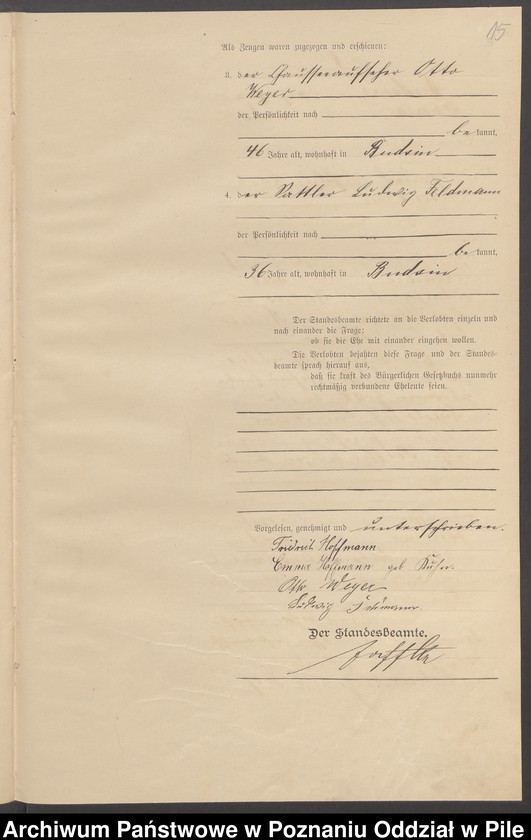 15
Als Zeugen waren zugezogen und erschienen:
3. der Chausseeaufseher Otto
Weyer
der Persönlichkeit nach
bekannt,
46 Jahre alt, wohnhaft in Budsin
4. der Sattler Ludwig Feldmann
der Persönlichkeit nach
bekannt,
36 Jahre alt, wohnhaft in Budsin
Der Standesbeamte richtete an die Verlobten einzeln und
nach einander die Frage:
ob sie die Ehe mit einander eingehen wollen.
Die Verlobten bejahten diese Frage und der Standes-
beamte sprach hierauf aus,
daß sie kraft des Bürgerlichen Gesetzbuchs nunmehr
rechtmäßig verbundene Eheleute seien.
Vorgelesen, genehmigt und unterschrieben.
Fridrich Hoffmann
Emma Hoffmann geb
Otto Weyer
Ludwig
Der Standesbeamte.
Archiwum Państwowe w Poznaniu Oddział w Pile